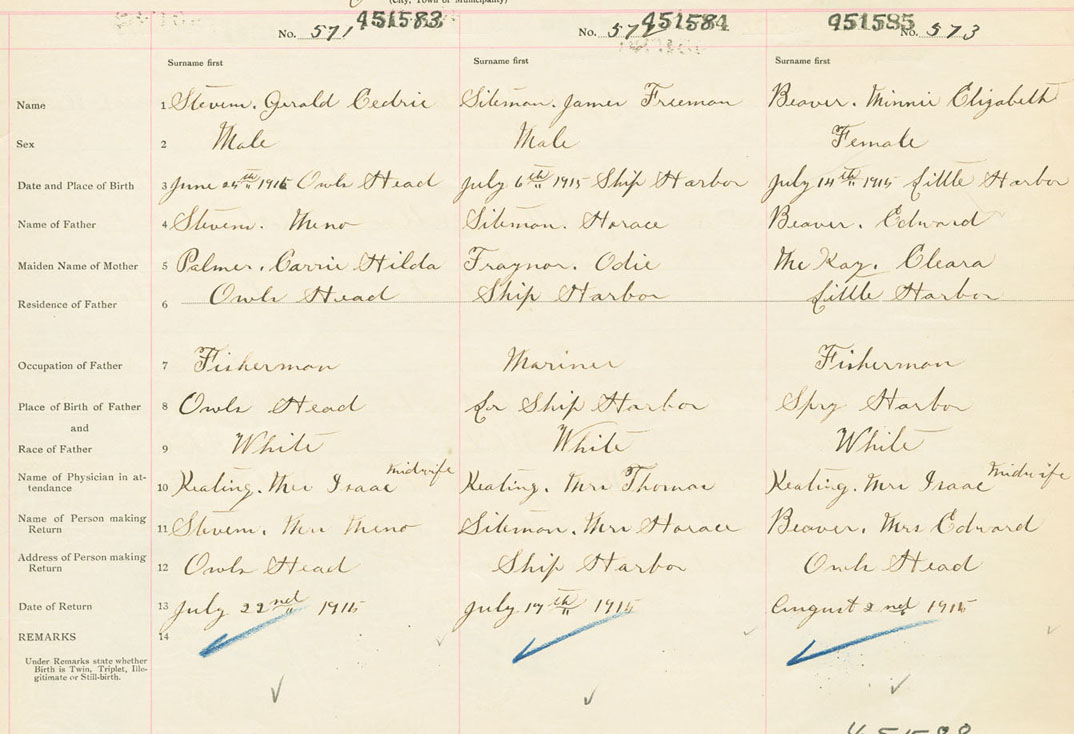 (City, Town or Municipality)
No. 571 451583 No. 572 451584 451585 No. 573
Surname first Surname first Surname first
Name 1 Stevens. Gerald Cedric Siteman. James Freeman Beaver. Minnie Elizabeth
Sex 2 Male Male Female
Date and Place of Birth 3 June 25th 1915 Owls Head July 6th 1915 Ship Harbor July 14th 1915 Little Harbor
Name of Father 4 Stevens. Meno Siteman. Horace Beaver. Edward
Maiden Name of Mother 5 Palmer. Carrie Hilda Traynor. Odie McKay. Cleara
Residence of Father 6 Owls Head Ship Harbor Little Harbor
Occupation of Father 7 Fisherman Mariner Fisherman
Place of Birth of Father 8 Owls Head Lr Ship Harbor Spry Harbor
and
Race of Father 9 White White White
Name of Physician in at-
tendance 10 Keating. Mrs Isaac Midwife Keating. Mrs Thomas Keating. Mrs Isaac Midwife
Name of Person making
Return 11 Stevens. Mrs Meno Siteman. Mrs Horace Beaver. Mrs Edward
Address of Person making
Return 12 Owls Head Ship Harbor Owls Head
Date of Return 13 July 22nd 1915 July 17th 1915 August 2nd 1915
REMARKS 14
Under Remarks state whether
Birth is Twin, Triplet, Ille-
gitimate or Still-birth.